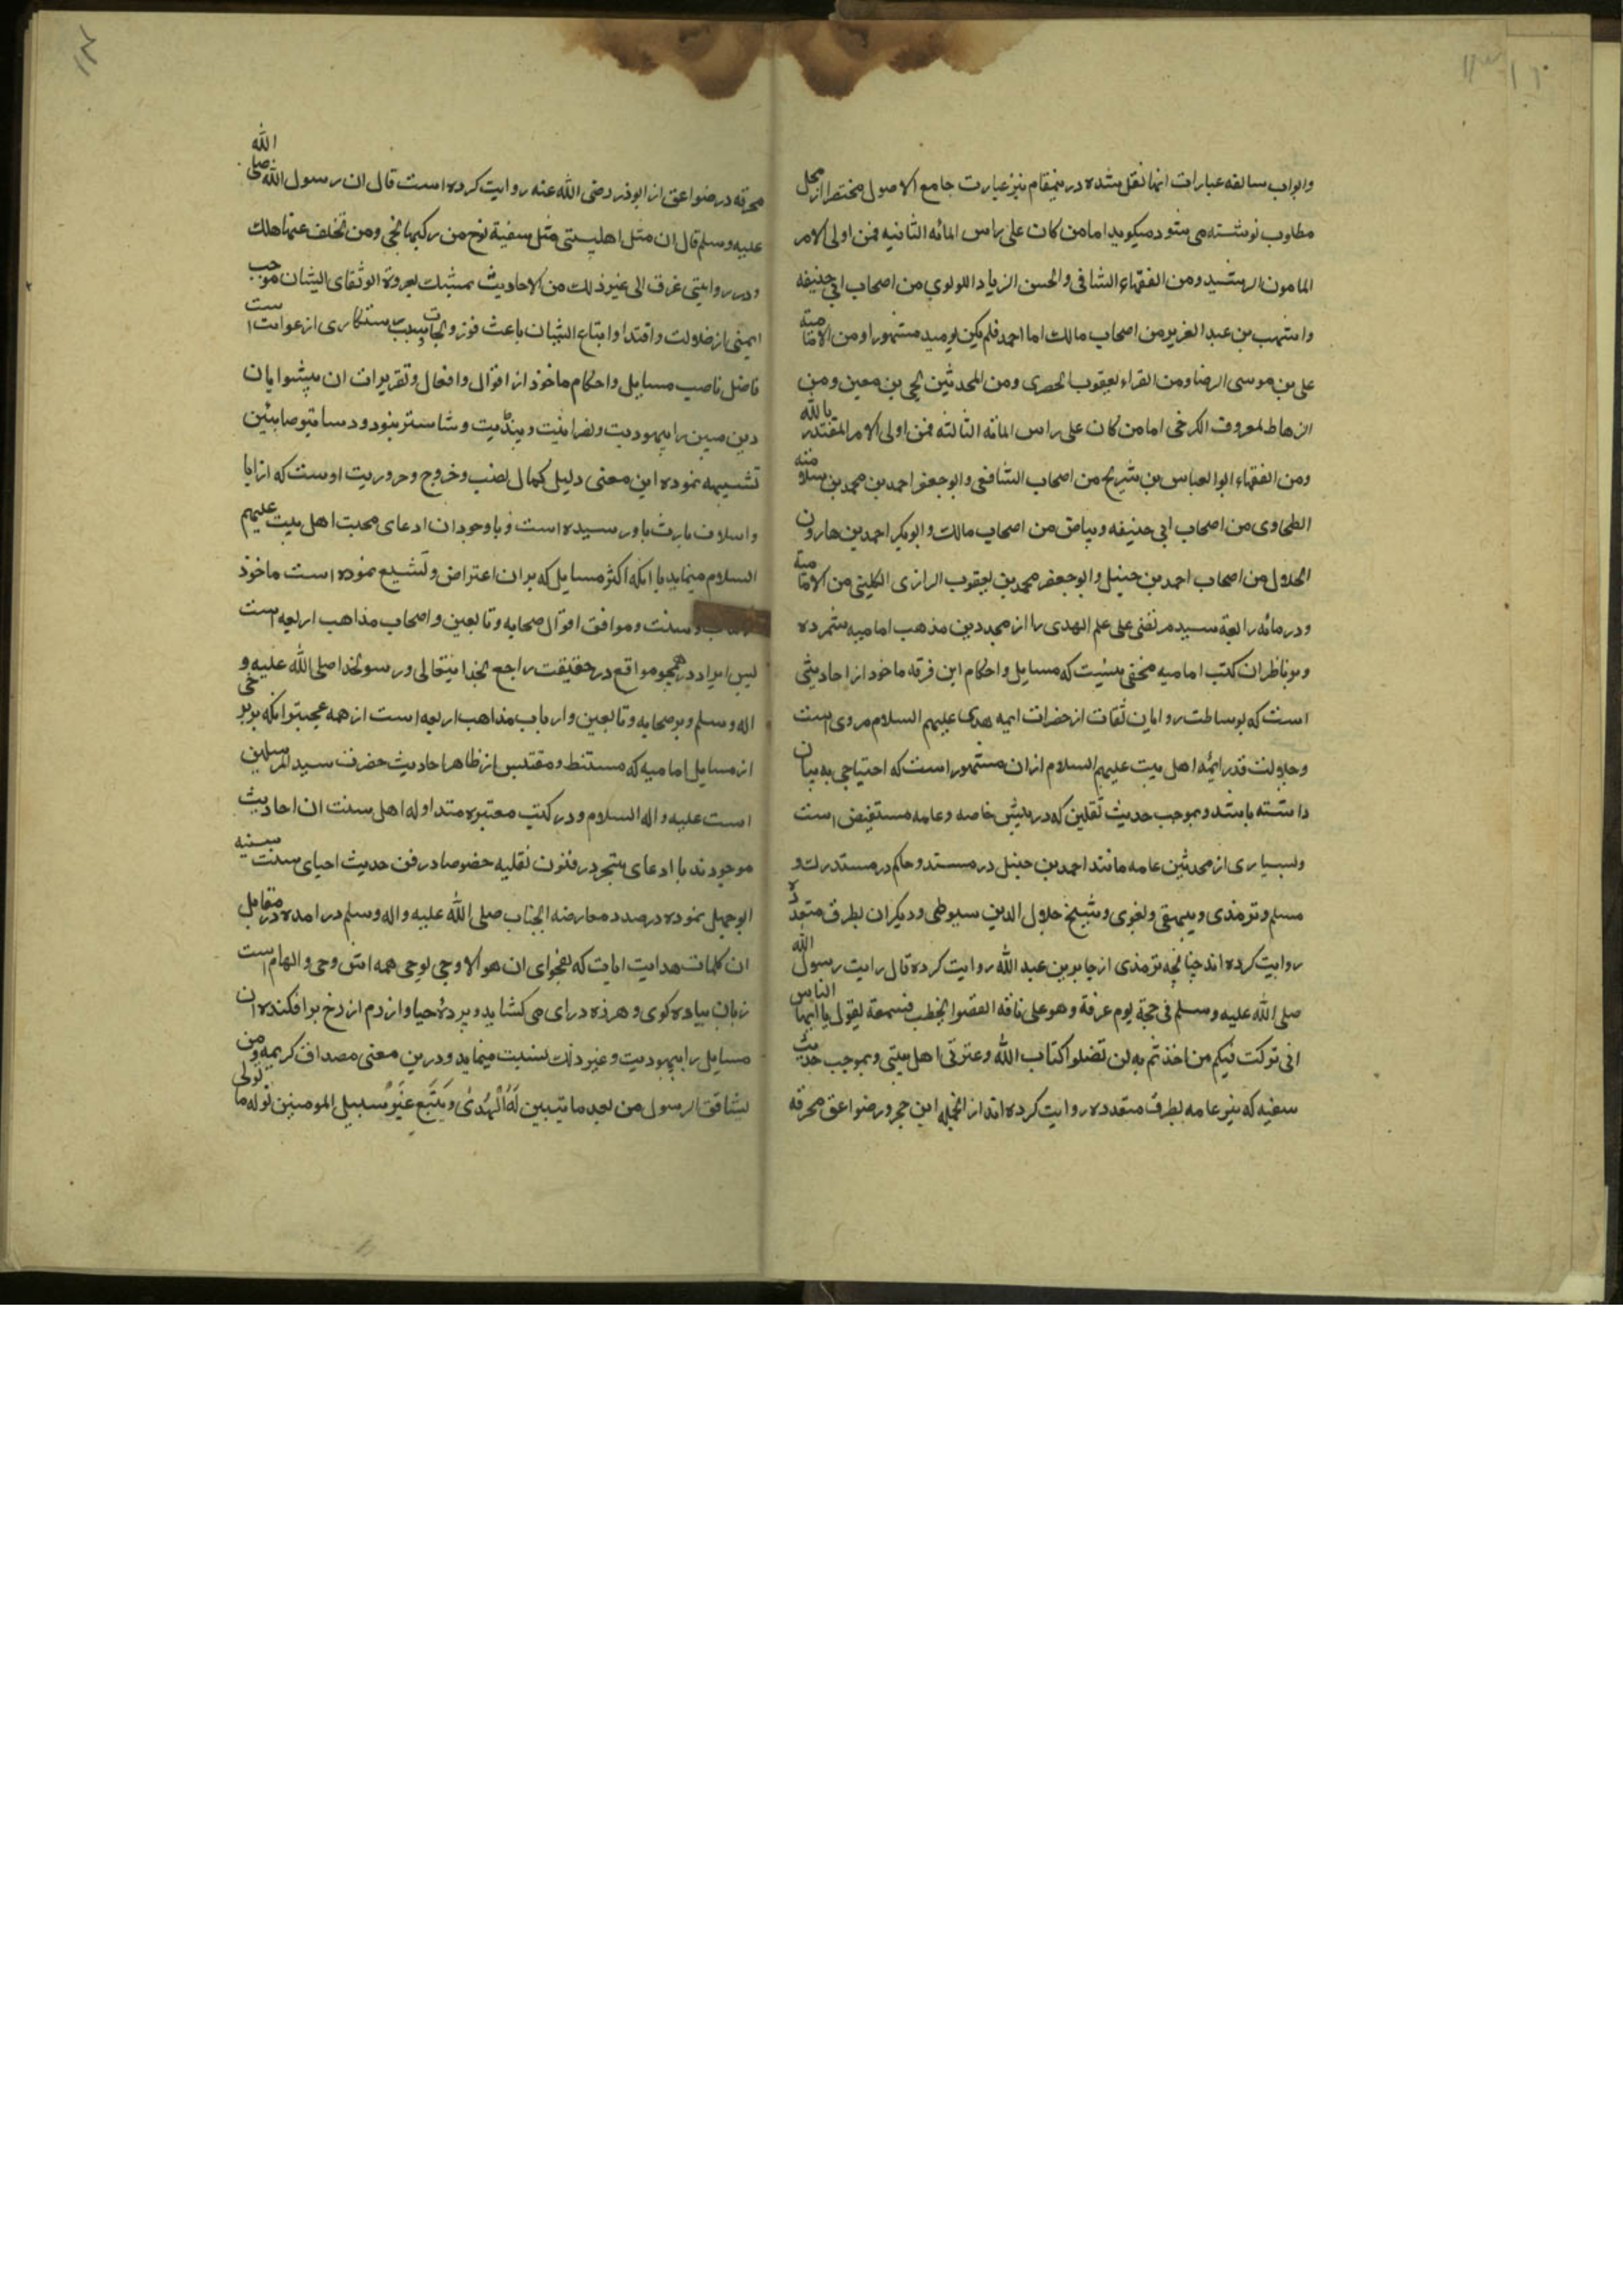 وابواب سابقه عبارات انها نقل شده درینمقام نیز عبارت جامع الاصول مختصرا از محل
مطلوب نوشته می شود میکوید اما من کان علی راس المائه الثانیه فمن اولی الامر
المامون الرشید ومن الفقهاء الشافی والحسن الزیاد اللولوی من اصحاب ابی حنیفه
واشهب بن عبد العزیز من اصحاب مالک اما احمد فلم یکن یومید مشهورا ومن الامامیة
علی بن موسی الرضا ومن القراء یعقوب الحصری ومن المحدثین یحی بن معین ومن
الزهاط معروف الکرخی اما من کان علی راس المائه الثالثه فمن اولی الامر المقتدر بالله
ومن الفقهاء ابوالعباس بن شریح من اصحاب الشافعی وابوجعفر احمد بن محمد بن سلامنه
الطحاوی من اصحاب ابی حنیفه وبیاض من اصحاب مالک وابوبکر احمد بن هارون
الخلال من اصحاب احمد بن حنبل وابوجعفر محمد بن یعقوب الرازی الکلینی من الامامیة
ودر مائه رابعة سید مرتضی علی علم الهدی را از مجددین مذهب امامیه شمرده
وبر ناظران کتب امامیه مخفی نیست که مسایل واحکام این فرقه ماخوذ از احادیثی
است که بوساطت روایان ثقات از حضرات ایمه هدی علیهم السلام مروی است
وجلالت قدر ایمه اهل بیت علیهم السلام ازان مشهور است که احتیاجی به بیان
داشته باشد وبموجب حدیث ثقلین که در پیش خاصه وعامه مستفیض است
وبسیاری از محدثین عامه مانند احمد بن حنبل در مسند وحاکم در مستدرک و
مسلم وترمذی وبیهقی وبغوی وشیخ جلال الدین سیوطی ودیکران بطرق متعدده
روایت کرده اند چنانچه ترمذی از جابر بن عبد الله روایت کرده قال رایت رسول الله
صلی الله علیه وسلم فی حجة یوم عرفة وهو علی ناقه القضوا یخطب فسمعة یقول یا ایها الناس
انی ترکت فیکم من اخذتم به لن تضلوا کتاب الله وعترتی اهل بیتی وبموجب حدیث
سفینه که نیز عامه بطرق متعدده روایت کرده اند از انجمله ابن حجر ورضواعق محرقه
محرقه در ضواعق از ابوذر رضی الله عنه روایت کرده است قال ان رسول الله صلی الله
علیه وسلم قال ان مثل اهلبیتی مثل سفینة نوح من رکبها نجی ومن تخلف عنها هلک
ودر روایتی غرق الی غیر ذلک من الاحادیث تمشبک بعروة الوثقای ایشان موجب
ایمنی از ضلالت واقتدا واتباع ایشان باعث فوز ونجات وسبب رستکاری از عوایت است
فاضل ناصب مسایل واحکام ماخوذ از اقوال وافعال وتقریرات ان پیشوایان
دین مبین را بیهودیت ونصرانیت وپنڈیت وشاستر نبود ودساتیر صابئین
تشبیهه نموده این معنی دلیل کمال نصب وخروج وحروریت اوست که از ابا
واسلاف بارث باور سیده است وباوجود ان ادعای محبت اهل بیت علیهم
السلام مینماید با انکه اکثر مسایل که بران اعتراض وتشیع نموده است ماخوذ
وسنت وموافق اقوال صحابه وتابعین واصحاب مذاهب اربعه است
پس ایراد در همچو مواقع در حقیقت راجع بخدا یتعالی ورسولخدا صلی الله علیه و
اله وسلم وبر صحابه وتابعین وارباب مذاهب اربعه است از همه عجبتر انکه بر برخی
از مسایل امامیه که مستنط ومقتلس از ظاهر احادیث حضرت سید المرسلین
است علیه واله السلام ودر کتب معتبره متداوله اهل سنت ان احادیث
موجودند با ادعای تبحر در فنون نقلیه خصوصا در فن حدیث احیای سنت سنیه
ابوجهل نموده در صدد معارضه انجناب صلی الله علیه واله وسلم در امده در مقابل
ان کلمات هدایت ایات که بفحوای ان هو الا وحی یوحی همه اش وحی والهام است
زبان بیاده کوی وهرزه درای می کشاید وپرده حیا وازرم از رخ برافکنده ان
مسایل را بیهودیت وغیر ذلک نسبت مینماید ودرین معنی مصداق کریمه ومن
یشاقق الرسول من بعد ما تبیین لَهُ الْهُدیٰ ویَتَّبِع غَیْرَ سبیل المومنین نوله ما تولی